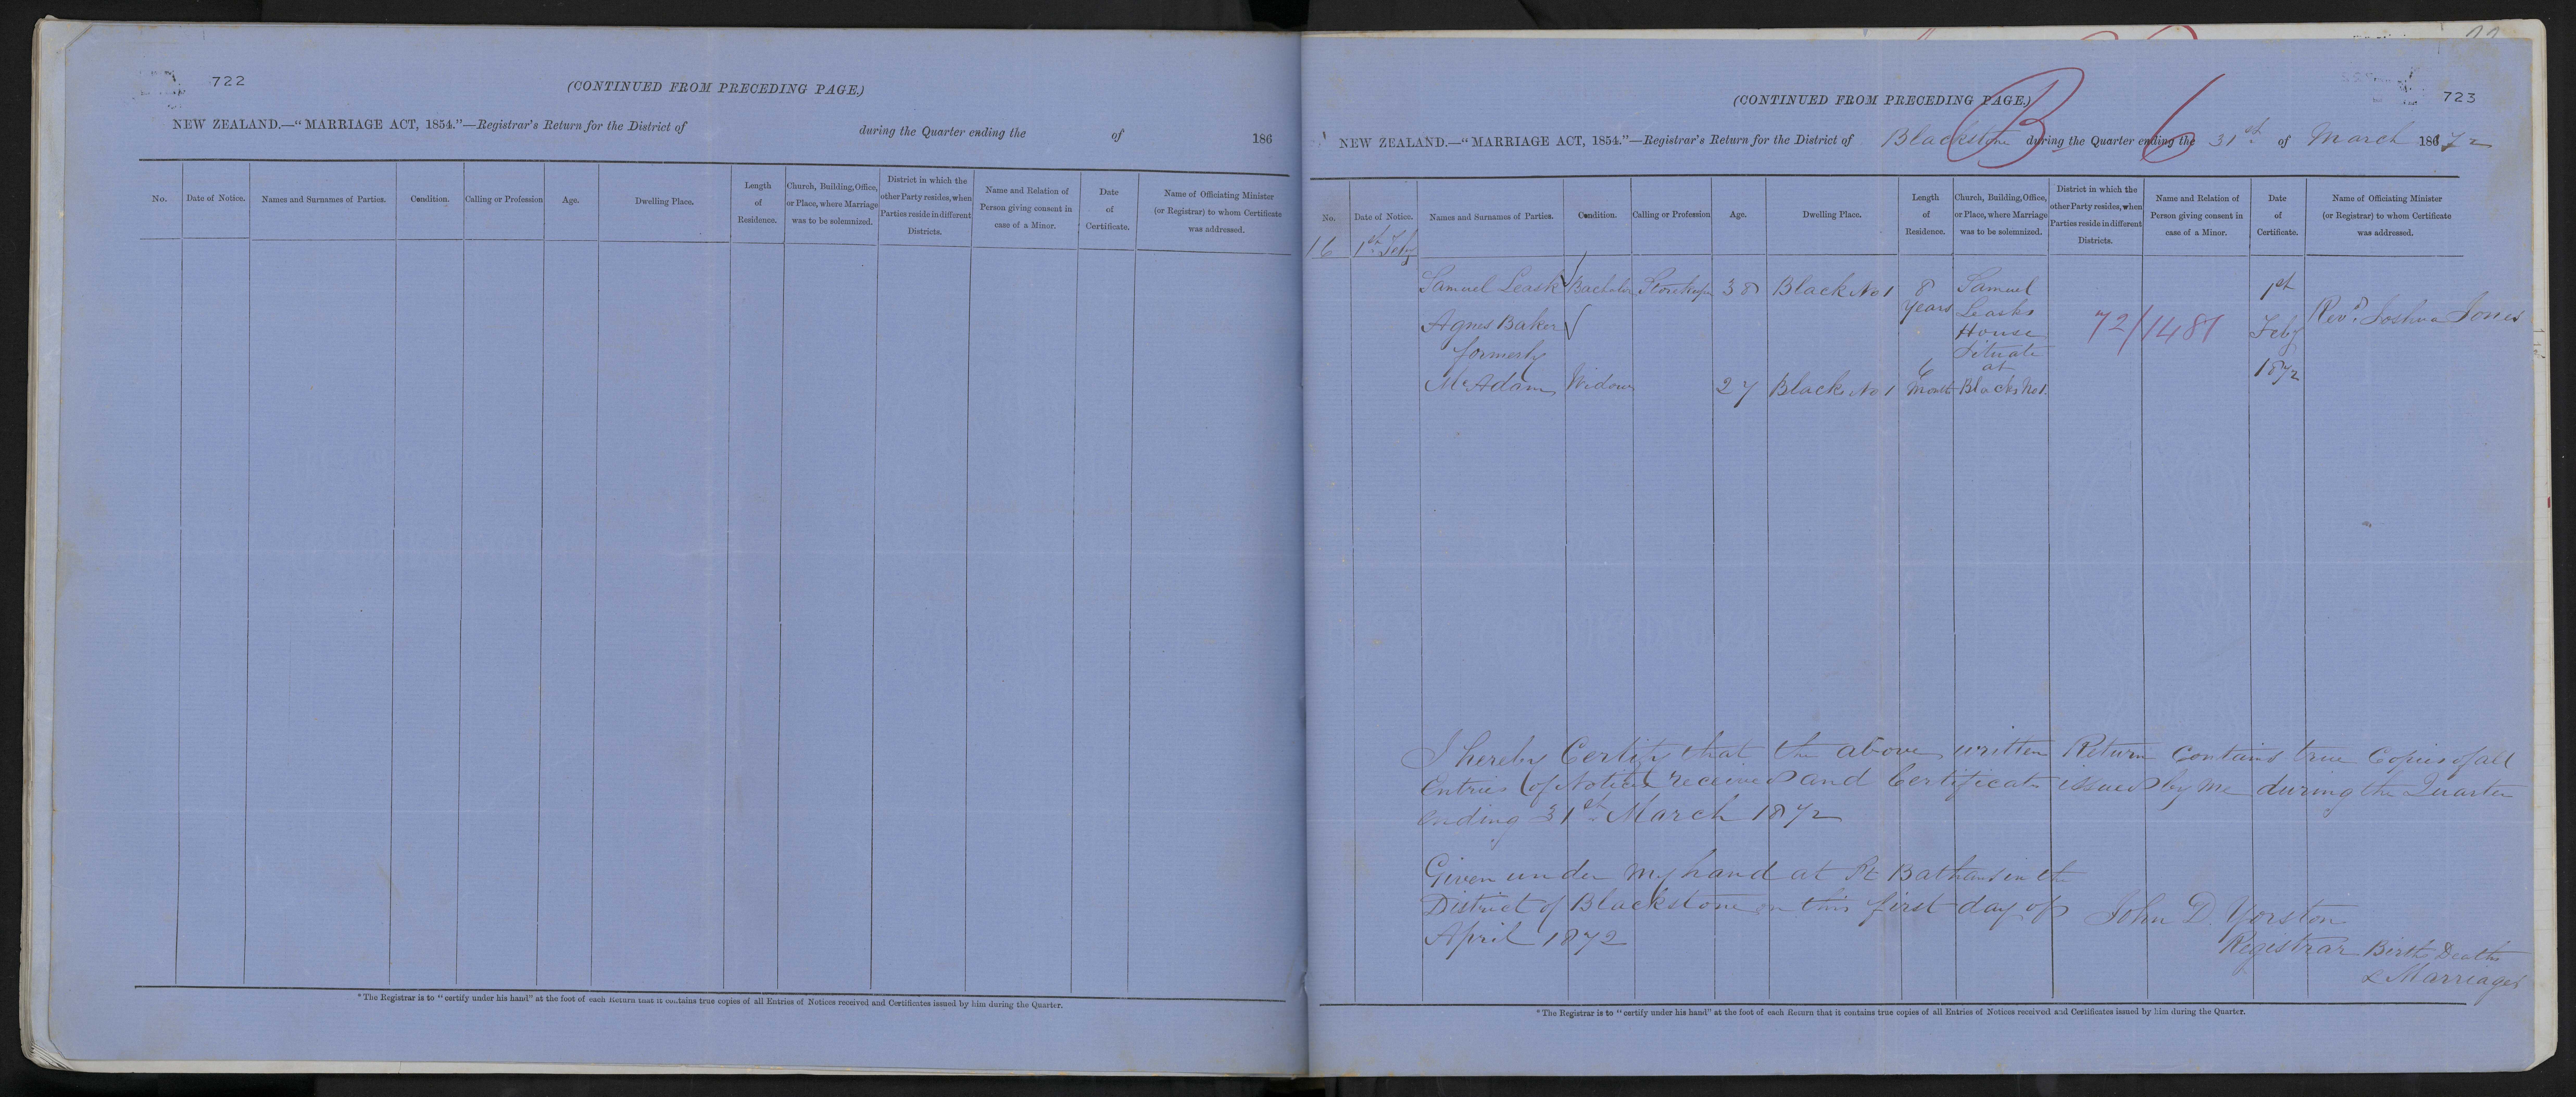 722
(CONTINUED FROM PRECEDING PAGE.)
NEW ZEALAND.—“MARRIAGE ACT, 1854.”—Registrar's Return for the District of during the Quarter ending the of 186
No.
Date of Notice.
Names and Surnames of Parties.
Condition.
Calling or Profession
Age.
Dwelling Place.
Length
of
Residence.
Church, Building, Office,
or Place, where Marriage
was to be solemnized.
District in which the
other Party resides, when
Parties reside in different
Districts.
Name and Relation of
Person giving consent in
case of a Minor.
Date
of
Certificate.
Name of Officiating Minister
(or Registrar) to whom Certificate
was addressed.
*The Registrar is to “certify under his hand” at the foot of each Return that it contains true copies of all Entries of Notices received and Certificates issued by him during the Quarter.
723
(CONTINUED FROM PRECEDING PAGE.)
B 6
NEW ZEALAND.—“MARRIAGE ACT, 1854.”—Registrar's Return for the District of Blackstone during the Quarter ending the 31st of March 1872
No.
Date of Notice.
Names and Surnames of Parties.
Condition.
Calling or Profession
Age.
Dwelling Place.
Length
of
Residence.
Church, Building, Office,
or Place, where Marriage
was to be solemnized.
District in which the
other Party resides, when
Parties reside in different
Districts.
Name and Relation of
Person giving consent in
case of a Minor.
Date
of
Certificate.
Name of Officiating Minister
(or Registrar) to whom Certificate
was addressed.
16
1st Feby
Samuel Leask
Bachelor
Storekeeper
38
Black No 1
8
Years
Samuel
Leasks
House
Situate
at
Blacks No 1.
72/1481
1st
Feby
1872
Revd. Joshua Jones
Agnes Baker
formerly
McAdam
Widow
27
Blacks No 1
6
Months
I hereby Certify that the above written Return Contains true Copies of all
Entries (of Notices) received and Certificates issued by me during the Quarter
ending 31st March 1872
Given under my hand at St Bathans in the
District of Blackstone on this first day of
April 1872
John D. Yorston
Registrar Birth Deaths
& Marriages
*The Registrar is to “certify under his hand” at the foot of each Return that it contains true copies of all Entries of Notices received and Certificates issued by him during the Quarter.